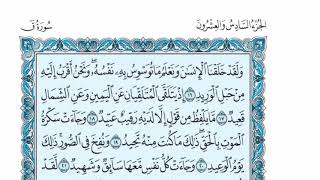 الجزء السادس والعشرون
سورة ق
ولقد خلقنا الإنسان ونعلم ما توسوس به نفسه ونحن أقرب إليه
من حبل الوريد ١٦ إذ يتلقى المتلقيان عن اليمين وعن الشمال
قعيد ١٧ ما يلفظ من قول إلا لديه رقيب عتيد ١٨ وجاءت سكرة
الموت بالحق ذلك ما كنت منه تحيد ١٩ ونفخ في الصور ذلك
يوم الوعيد ٢٠ وجاءت كل نفس معها سائق وشهيد ٢١ لقد